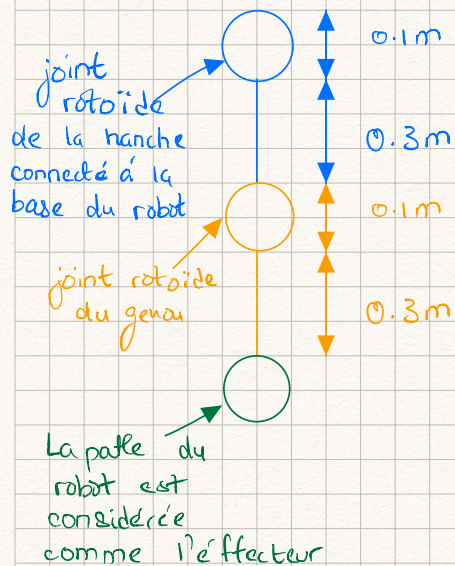 0.1m
joint
rotoïde
de la hanche
connecté á la
base du robot
0.3m
0.1m
joint rotoïde
du genou
0.3m
La patte du
robot est
considérée
comme l'éffecteur